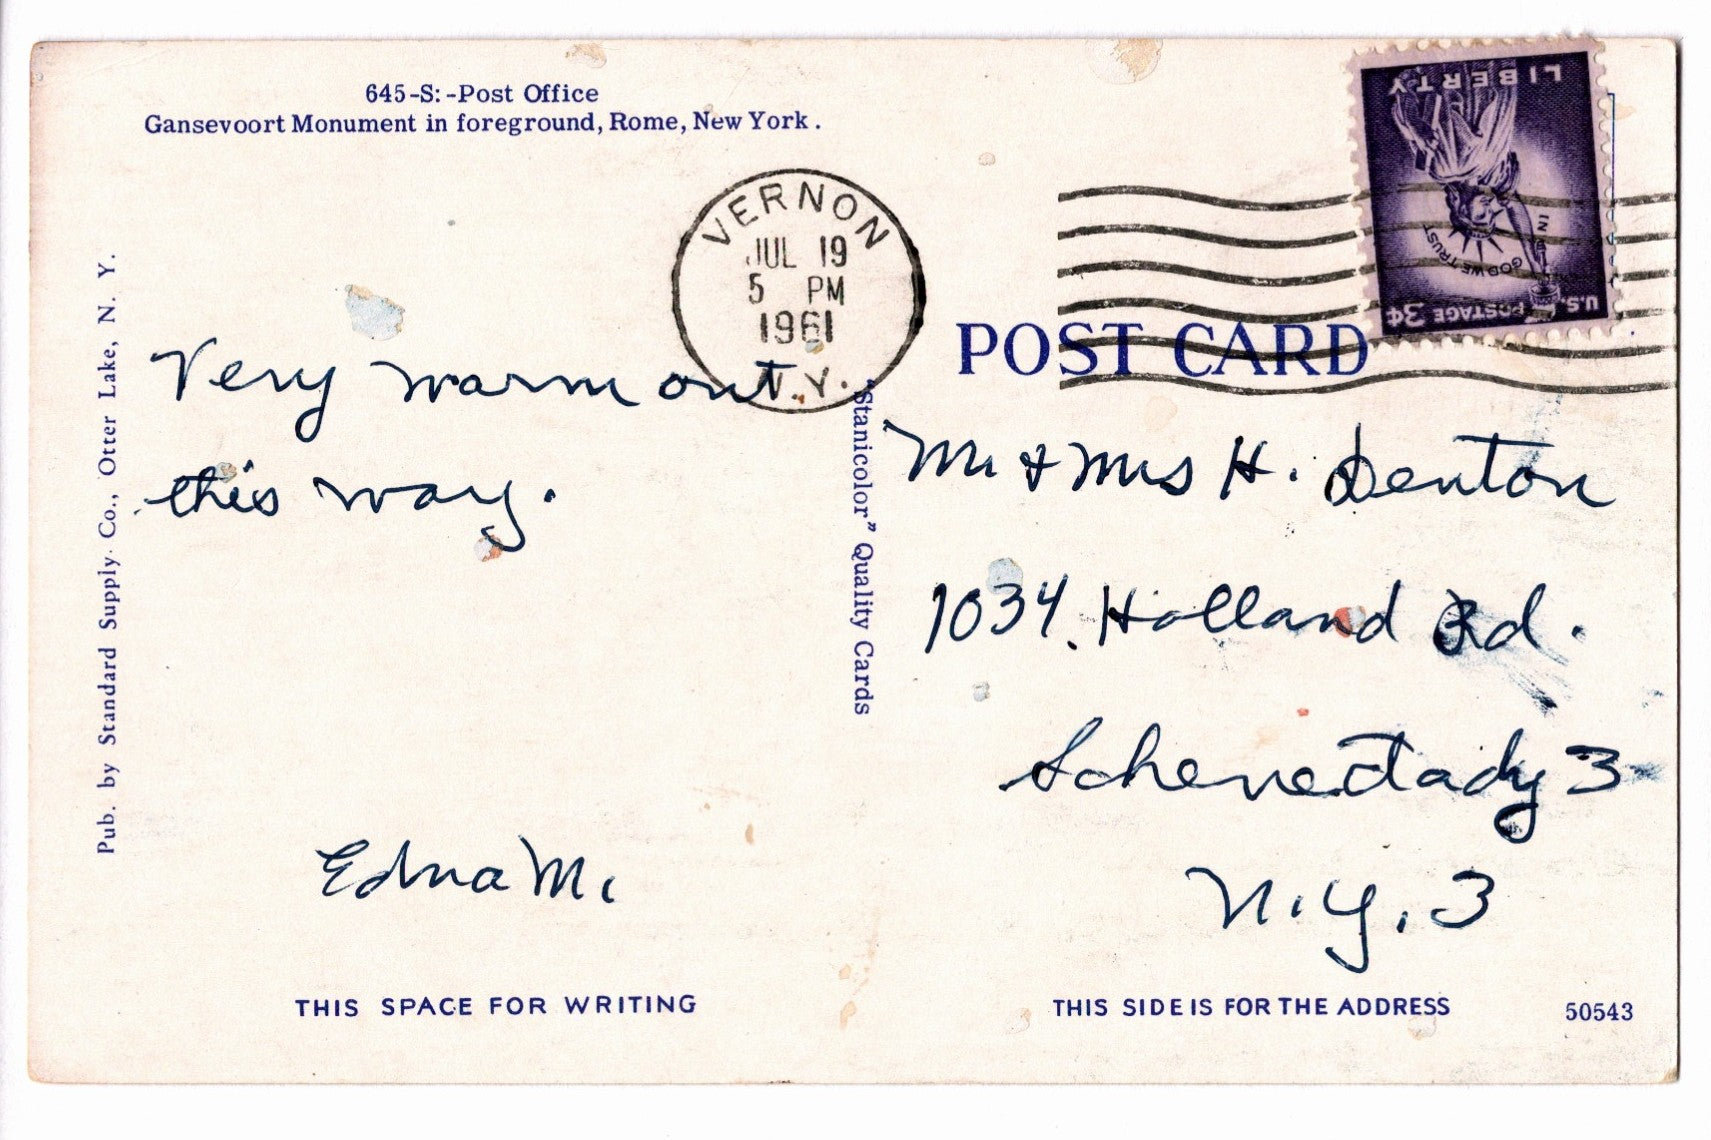 645-S:-Post Office
Gansevoort Monument in foreground, Rome, New York.
Pub. by Standard Supply Co., Otter Lake, N. Y.
VERNON
JUL 19
5 PM
1961
N.Y.
Very warm out
this way.
Edna M.
THIS SPACE FOR WRITING
"Stanicolor" Quality Cards
LIBERTY
IN GOD WE TRUST
U.S. POSTAGE 3¢
POST CARD
Mr & Mrs H. Denton
1034 Holland Rd.
Schenectady 3
N.Y. 3
THIS SIDE IS FOR THE ADDRESS
50543